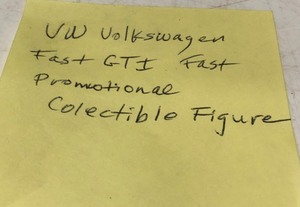 VW Volkswagen
Fast GTI Fast
Promotional
Colectible Figure